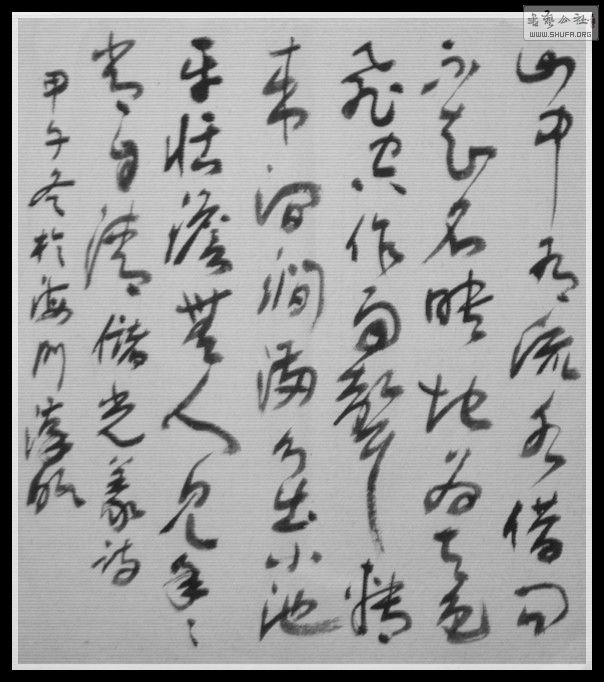 山中有流水借問
不知名映地為天色
飛空作雨聲轉
來澗滿分出小池
平恬澹無人見年々
常自清儲光羲詩
甲午冬於海門淳
書藝公社
WWW.SHUFA.ORG